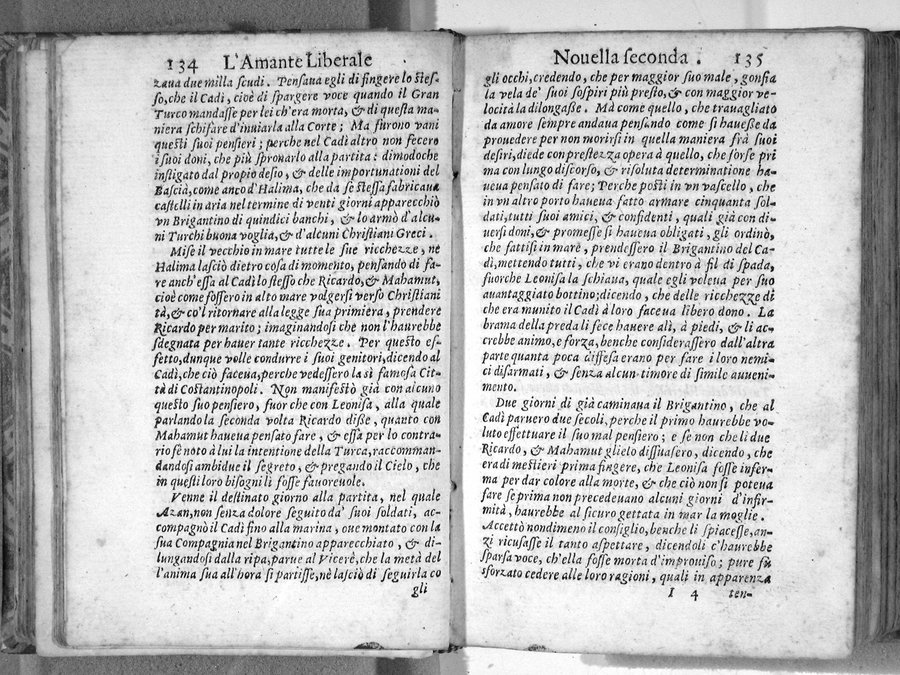 134 L'Amante Liberale
zaua due milla scudi. Pensaua egli di fingere lo stes-
so, che il Cadì, cioè di spargere voce quando il Gran
Turco mandasse per lei ch'era morta, & di questa ma-
niera schifare d'inuiarla alla Corte; Ma furono vani
questi suoi pensieri; perche nel Cadì altro non fecero
i suoi doni, che più spronarlo alla partita: dimodoche
instigato dal propio desio, & delle importunationi del
Bascià, come anco d'Halima, che da se stessa fabricaua
castelli in aria nel termine di venti giorni apparecchiò
vn Brigantino di quindici banchi, & lo armò d'alcu-
ni Turchi buona voglia, & d'alcuni Christiani Greci.
Mise il vecchio in mare tutte le sue ricchezze, ne
Halima lasciò dietro cosa di momento, pensando di fa-
re anch'essa al Cadì lo stesso che Ricardo, & Mahamut,
cioè come fossero in alto mare volgersi verso Christiani
tà, & co'l ritornare alla legge sua primiera, prendere
Ricardo per marito; imaginandosi che non l'haurebbe
sdegnata per hauer tante ricchezze. Per questo ef-
fetto, dunque volle condurre i suoi genitori, dicendo al
Cadì, che ciò faceua, perche vedessero la sì famosa Cit-
tà di Costantinopoli. Non manifestò già con alcuno
questo suo pensiero, fuor che con Leonisa, alla quale
parlando la seconda volta Ricardo disse, quanto con
Mahamut haueua pensato fare, & essa per lo contra-
rio fè noto à lui la intentione della Turca, raccomman-
dandosi ambidue il segreto, & pregando il Cielo, che
in questi loro bisogni li fosse fauoreuole.
Venne il destinato giorno alla partita, nel quale
Azan, non senza dolore seguito da' suoi soldati, ac-
compagnò il Cadì fino alla marina, oue montato con la
sua Compagnia nel Brigantino apparecchiato, & di-
lungandosi dalla ripa, parue al Vicerè, che la metà del
l'anima sua all'hora si partisse, nè lasciò di seguirla co
gli
Nouella seconda. 135
gli occhi, credendo, che per maggior suo male, gonfia
la vela de' suoi sospiri più presto, & con maggior ve-
locità la dilongasse. Mà come quello, che trauagliato
da amore sempre andaua pensando come si hauesse da
prouedere per non morirsi in quella maniera frà suoi
desiri, diede con prestezza opera à quello, che forse pri
ma con lungo discorso, & risoluta determinatione ha-
ueua pensato di fare; Perche posti in vn vascello, che
in vn altro porto haueua fatto armare cinquanta sol-
dati, tutti suoi amici, & confidenti, quali già con di-
uersi doni, & promesse si haueua obligati, gli ordinò,
che fattisi in mare, prendessero il Brigantino del Ca-
dì, mettendo tutti, che vi erano dentro à fil di spada,
fuorche Leonisa la schiaua, quale egli voleua per suo
auantaggiato bottino; dicendo, che delle ricchezze di
che era munito il Cadì à loro faceua libero dono. La
brama della preda li fece hauere ali, à piedi, & li ac-
crebbe animo, e forza, benche considerassero dall'altra
parte quanta poca diffesa erano per fare i loro nemi-
ci disarmati, & senza alcun timore di simile auueni-
mento.
Due giorni di già caminaua il Brigantino, che al
Cadì paruero due secoli, perche il primo haurebbe vo-
luto effettuare il suo mal pensiero; e se non che li due
Ricardo, & Mahamut glielo dissuasero, dicendo, che
era di mestieri prima fingere, che Leonisa fosse infer-
ma per dar colore alla morte, & che ciò non si poteua
fare se prima non precedeuano alcuni giorni d'infir-
mità, haurebbe al sicuro gettata in mar la moglie.
Accettò nondimeno il consiglio, benche li spiacesse, an-
zi ricusasse il tanto aspettare, dicendoli c'haurebbe
sparsa voce, ch'ella fosse morta d'improuiso; pure fù
sforzato cedere alle loro ragioni, quali in apparenza
I 4 ten-